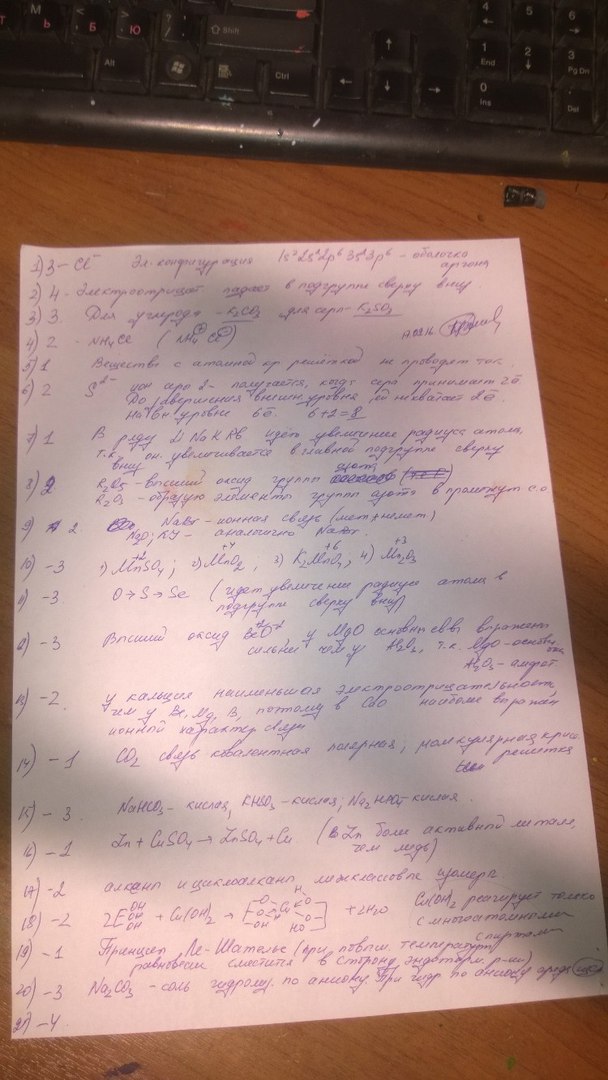 М Ь
Б
Ю
Shift
Alt
Ctrl
4
6
1 End
2
3 Pg Dn
0 Ins
Del
1) 3 - Cl⁻ Эл. конфигурация 1s² 2s² 2p⁶ 3s² 3p⁶ - оболочка
аргона
2) 4 - Электроотрицат падает в подгруппе сверху вниз
3) 3. Для углерода - K₂CO₃ для серы - K₂SO₃
4) 2 - NH₄Cl (NH₄⁺ Cl⁻)
5) 1 Вещества с атомной кр решёткой не проводят ток
6) 2 S²⁻ ион серы 2- получается, когда сера принимает 2ē
До завершения внешн. уровня ей не хватает 2ē
На вн уровне 6ē. 6+2=8
7) 1 В ряду Li Na K Rb идёт увеличение радиуса атома,
т.к. он увеличивается в главной подгруппе сверху
вниз
8) 2 R₂O₅ - высший оксид группы азота
R₂O₃ - образую элементы группы азота в промежут с.о
9) 2 NaBr - ионная связь (мет + немет)
KY - аналогично
10) - 3 1) MnSO₄; 2) MnO₂, 3) K₂MnO₄, 4) Mn₂O₃
+2 +4 +6 +3
11) - 3 O → S → Se (идёт увеличение радиуса атома в
подгруппе сверху вниз)
12) - 3 Высший оксид у MgO основные св выражены
сильнее чем у Al₂O₃, т.к. MgO - основн
Al₂O₃ - амфот.
13) - 2. у кальция наименьшая электроотрицательность,
чем у Be, Mg, B, поэтому в CaO наиболе выражен
ионный характер связи
14) - 1 CO₂ связь ковалентная полярная, молекулярная крис.
решётка
15) - 3. NaHCO₃ - кислая, KHSO₃ - кислая; Na₂HPO₄ - кислая.
16) - 1 Zn + CuSO₄ → ZnSO₄ + Cu (Zn более активный металл,
чем медь)
17) - 2 алканы и циклоалканы межклассовые изомеры
18) - 2 + Cu(OH)₂ → + 2H₂O Cu(OH)₂ реагирует только
с многоатомными
спиртами
19) - 1 Принцип Ле-Шателье (при повыш. температуры
равновесие сместится в сторону эндотерм. р-ии)
20) - 3 Na₂CO₃ - соль гидролиз. по аниону При гидр по аниону среда
21) - 4.